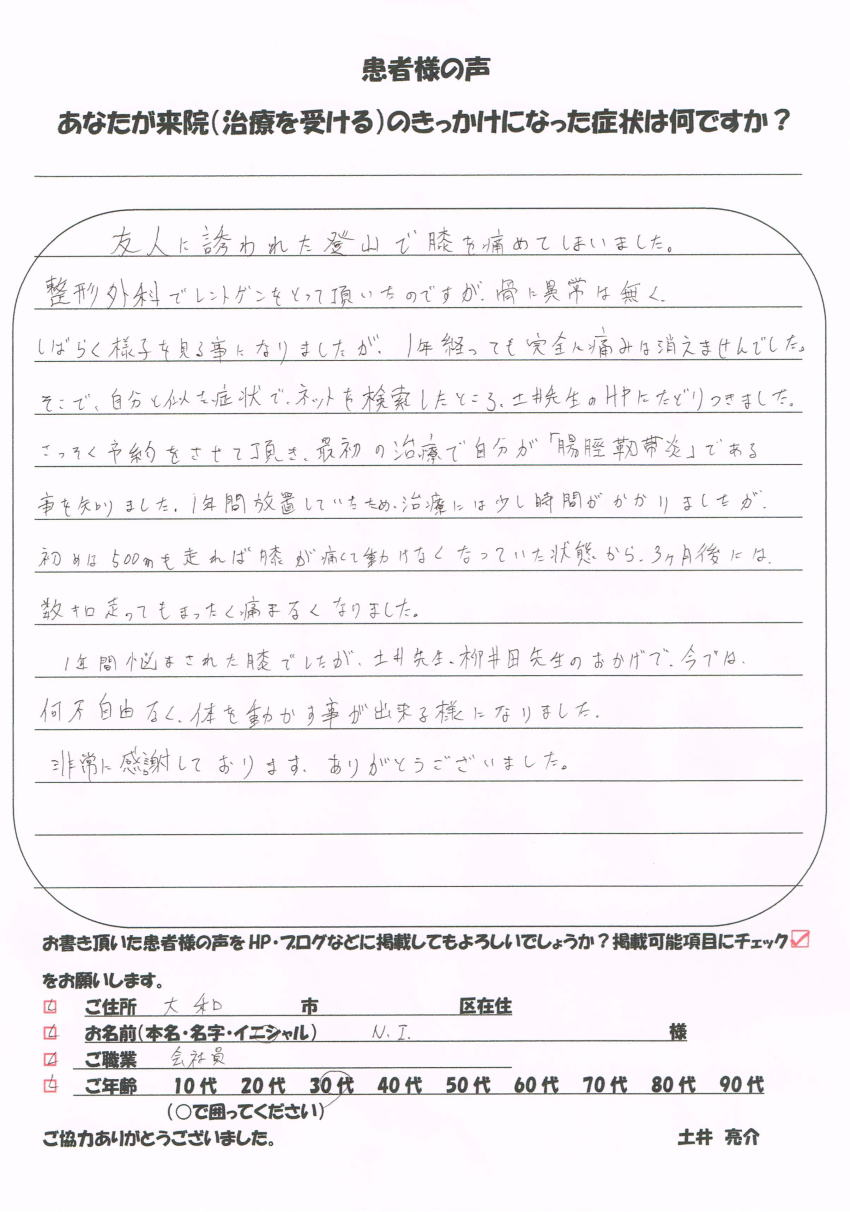 患者様の声
あなたが来院(治療を受ける)のきっかけになった症状は何ですか?
友人に誘われた登山で膝を痛めてしまいました。
整形外科でレントゲンをとって頂いたのですが、骨に異常は無く、
しばらく様子を見る事になりましたが、1年経っても完全に痛みは消えませんでした。
そこで、自分と似た症状で、ネットを検索したところ、土井先生のHPにたどりつきました。
さっそく予約をさせて頂き、最初の治療で自分が「腸脛靭帯炎」である
事を知りました。1年間放置していたため、治療には少し時間がかかりましたが、
初めは500mも走れば膝が痛くて動けなくなっていた状態から、3ヶ月後には、
数キロ走ってもまったく痛まなくなりました。
1年間悩まされた膝でしたが、土井先生、柳井田先生のおかげで、今では、
何不自由なく、体を動かす事が出来る様になりました。
非常に感謝しております。ありがとうございました。
お書き頂いた患者様の声をHP・ブログなどに掲載してもよろしいでしょうか?掲載可能項目にチェック
をお願いします。
ご住所 大和 市 区在住
お名前(本名・名字・イニシャル) N.I. 様
ご職業 会社員
ご年齢 10代 20代 30代 40代 50代 60代 70代 80代 90代
(○で囲ってください)
ご協力ありがとうございました。 土井 亮介